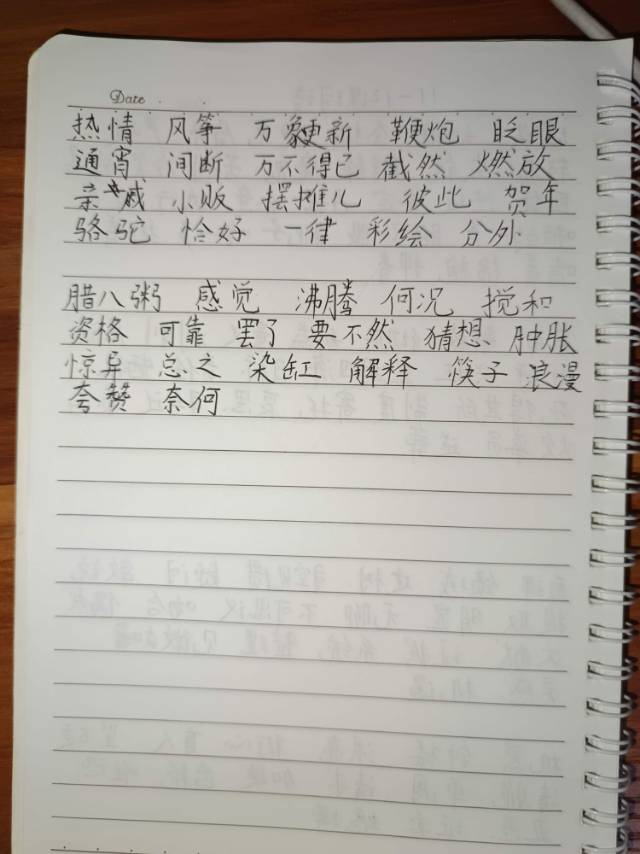 Date
热情 风筝 万象更新 鞭炮 眨眼
通宵 间断 万不得已 截然 燃放
亲戚 小贩 摆摊儿 彼此 贺年
骆驼 恰好 一律 彩绘 分外
腊八粥 感觉 沸腾 何况 搅和
资格 可靠 罢了 要不然 猜想 肿胀
惊异 总之 染缸 解释 筷子 浪漫
夸赞 奈何